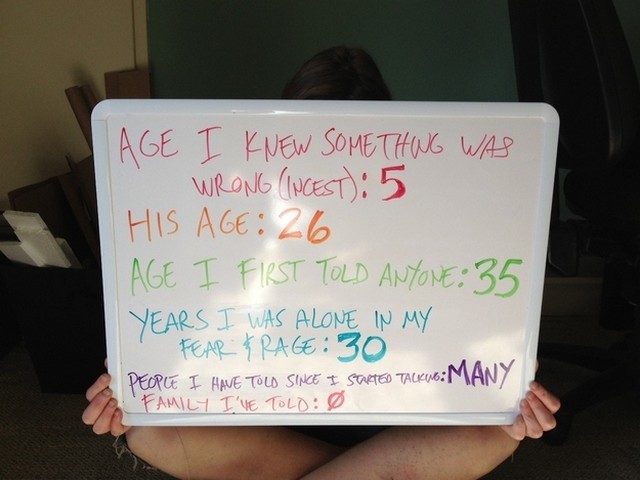 AGE I KNEW SOMETHING WAS
WRONG (INCEST): 5
HIS AGE: 26
AGE I FIRST TOLD ANYONE: 35
YEARS I WAS ALONE IN MY
FEAR & RAGE: 30
PEOPLE I HAVE TOLD SINCE I STARTED TALKING: MANY
FAMILY I'VE TOLD: Ø